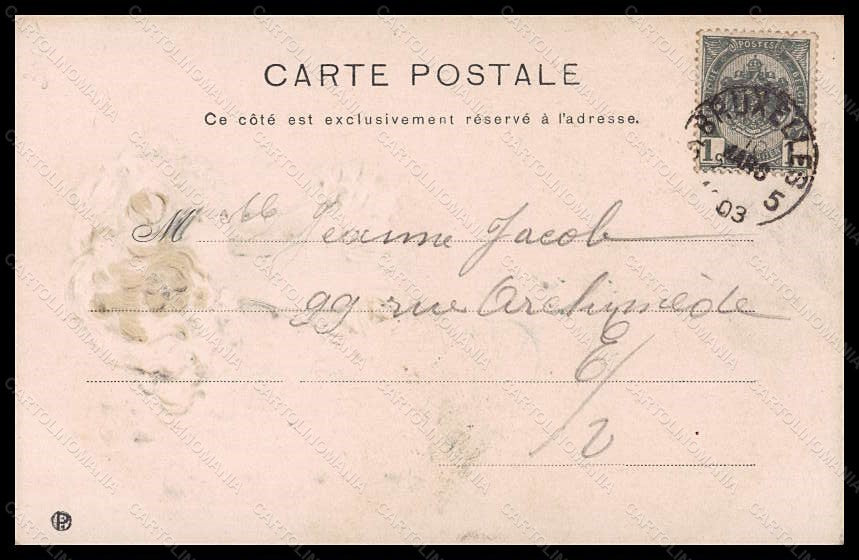 CARTE POSTALE
Ce côté est exclusivement réservé à l'adresse.
POSTES
1 1
BRUXELLES
MARS
5
03
Mlle Jeanne Jacob
99 rue Archimède
E/
2
P
CARTOLINOMANIA